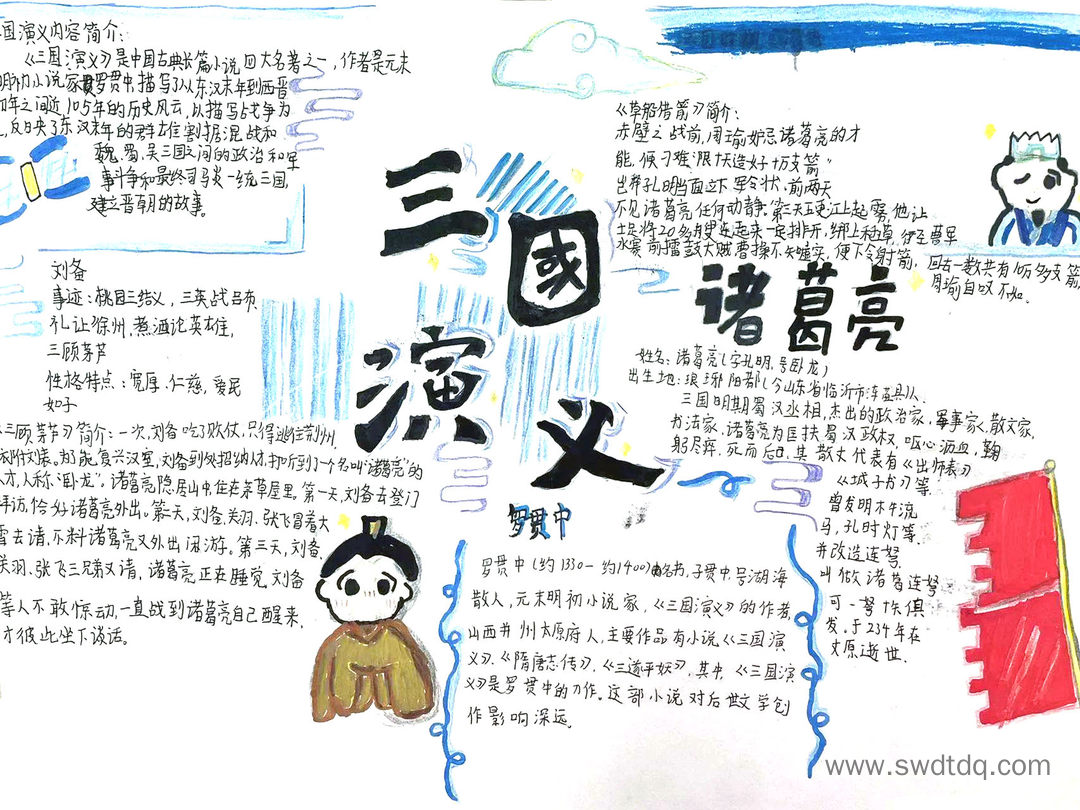 国演义内容简介:
《三国演义》是中国古典长篇小说四大名著之一,作者是元末
明初小说家罗贯中,描写了从东汉末年到西晋
初年之间近105年的历史风云,以描写战争为
反映了东汉末年的群雄割据混战和
魏、蜀、吴三国之间的政治和军
事斗争和最终司马炎一统三国,
建立晋朝的故事。
刘备
事迹:桃园三结义,三英战吕布
礼让徐州,煮酒论英雄,
三顾茅芦
性格特点:宽厚、仁慈,爱民
如子
三顾茅芦》简介:一次,刘备吃了败仗,只得逃往荆州,
投附刘表。为了能复兴汉室,刘备到处招纳人才,打听到了个名叫“诸葛亮”的
人才,人称:“卧龙”,诸葛亮隐居山中住在茅草屋里。第一天,刘备去登门
拜访,恰好诸葛亮外出。第二天,刘备,关羽、张飞冒着大
雪去请,不料诸葛亮又外出闲游。第三天,刘备、
关羽、张飞三兄弟又请,诸葛亮正在睡觉,刘备
等人不敢惊动,一直战到诸葛亮自己醒来,
才彼此坐下谈话。
三國
演义
罗贯中
罗贯中(约1330-约1400)名书,字贯中,号湖海
散人,元末明初小说家,《三国演义》的作者,
山西并州太原府人,主要作品有小说《三国演
义》、《隋唐志传》、《三遂平妖》,其中,《三国演
义》是罗贯中的力作。这部小说对后世文学创
作影响深远。
《草船借箭》简介:
赤壁之战前,周瑜妒忌诸葛亮的才
能,便刁难“限十天造好十万支箭”
出莽孔明当面立下军令状,前两天
不见诸葛亮任何动静。第三天五更江上起雾,他让
士兵将20多艘连起来一起排开,绑上稻草,行至曹军
水寨前擂鼓大贼曹操不知嘘实,便下令射箭,回去一数共有10万多支箭,
周瑜自叹不如。
诸葛亮
姓名:诸葛亮(字孔明,号卧龙)
出生地:琅琊阳都(今山东省临沂市沂县)人、
三国时期蜀汉丞相,杰出的政治家,军事家、散文家,
书法家、诸葛亮为匡扶蜀汉政权,呕心沥血,鞠
躬尽瘁,死而后已,其散文代表有《出师表》
《诫子书》等.
曾发明木牛流
马,孔明灯等.
并改造连弩.
叫做诸葛连弩
可一弩十俱
发,于234年在
丈原逝世.
www.swdtdq.com